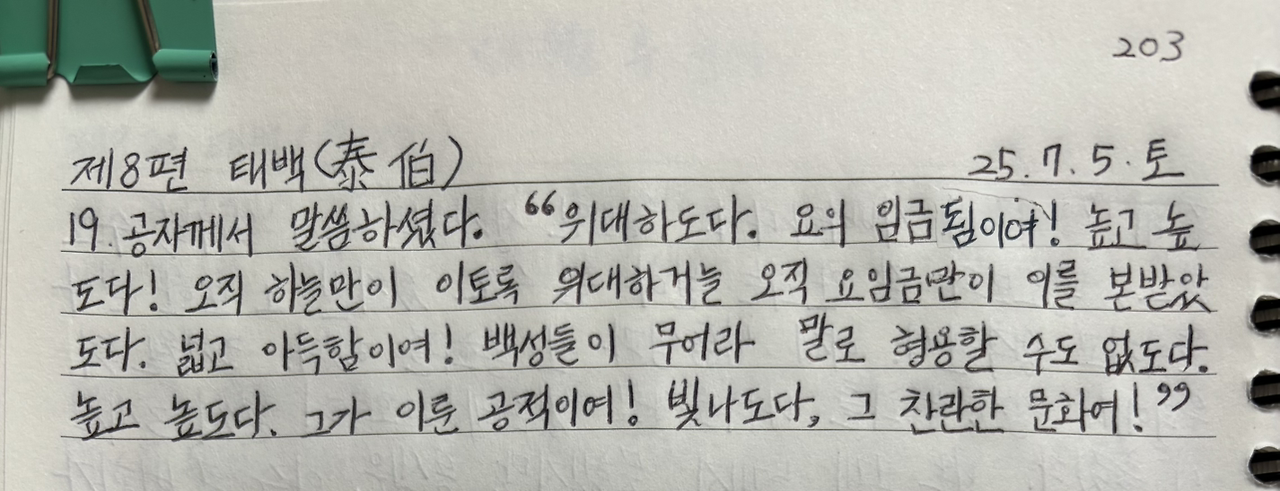 203
제8편 태백(泰伯) 25.7.5.토
19. 공자께서 말씀하셨다. "위대하도다. 요의 임금됨이여! 높고 높
도다! 오직 하늘만이 이토록 위대하거늘 오직 요임금만이 이를 본받았
도다. 넓고 아득함이여! 백성들이 무어라 말로 형용할 수도 없도다.
높고 높도다. 그가 이룬 공적이여! 빛나도다, 그 찬란한 문화여!"